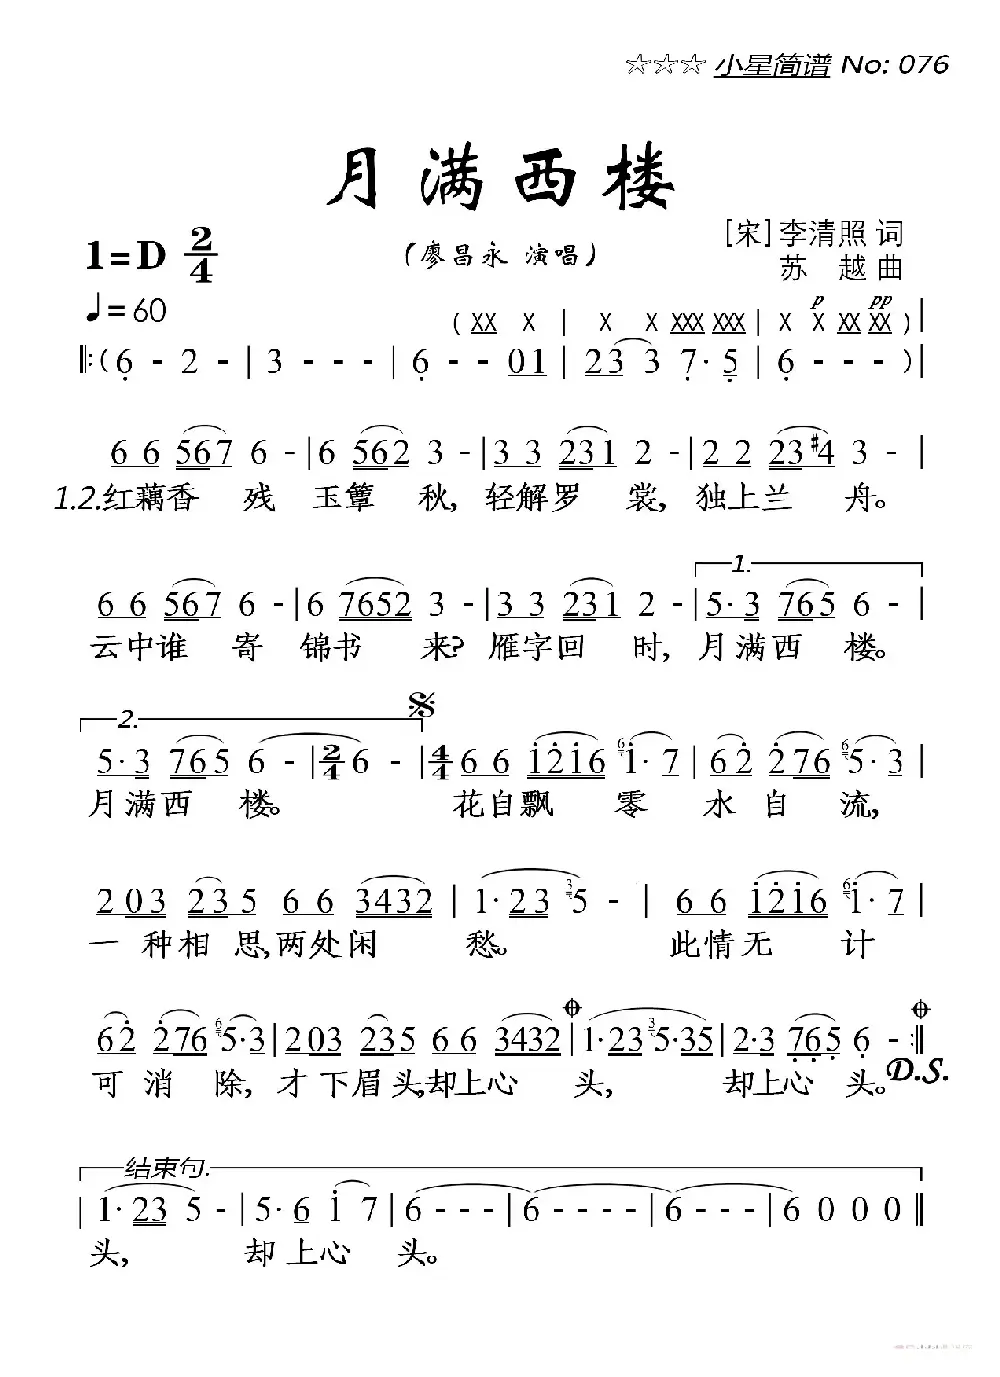 ☆☆☆ 小星简谱 No: 076
月满西楼
1=D 2/4
(廖昌永 演唱)
[宋]李清照 词
苏 越 曲
♩=60
p pp
(XX X | X X XXX XXX | X X XX XX)|
‖:(6 - 2 - | 3 - - - | 6 - - 01 | 23 3 7· 5 | 6 - - - )|
6 6 567 6 - | 6 562 3 - | 3 3 231 2 - | 2 2 23#4 3 - |
1.2.红藕香 残 玉簟 秋, 轻解罗 裳, 独上兰 舟。
1.
6 6 567 6 - | 6 7652 3 - | 3 3 231 2 - | 5· 3 765 6 - |
云中谁 寄 锦书 来? 雁字回 时, 月满西 楼。
2. 𝄋
5· 3 765 6 - | 2/4 6 - | 4/4 6 6 1216 6 1· 7 | 62 276 6 5· 3 |
月满西 楼。 花自飘 零 水自 流,
2 03 235 6 6 3432 | 1· 23 3 5 - | 6 6 1216 6 1· 7 |
一 种相 思,两处闲 愁。 此情无 计
62 276 6 5·3 | 203 235 6 6 3432 | 1·23 3 5·35 | 2·3 765 6 - :‖
可 消 除, 才下眉头,却上心 头, 却上心 头。 D.S.
结束句.
| 1· 23 5 - | 5· 6 1 7 | 6 - - - | 6 - - - - | 6 - - - | 6 0 0 0 ‖
头, 却上心 头。